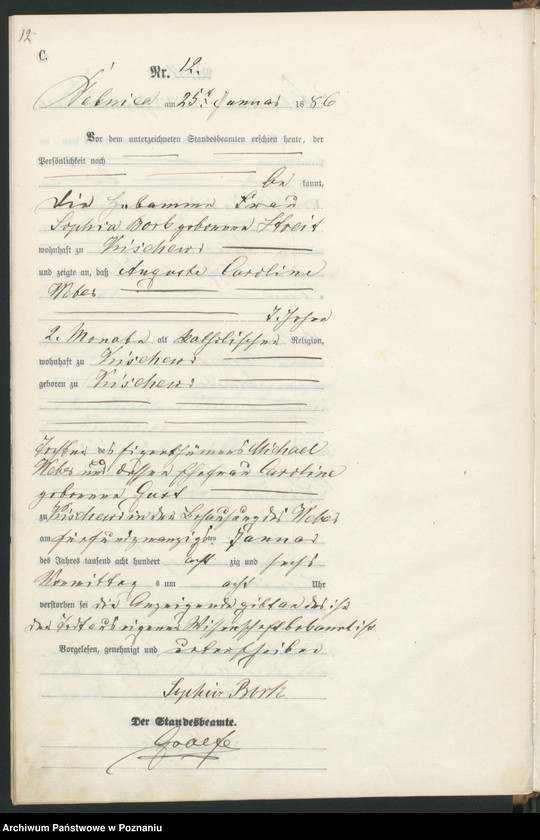 12
C.
Nr. 12.
am 25t Januar 1886
Vor dem unterzeichneten Standesbeamten erschien heute, der
Persönlichkeit nach
be kannt,
die Hebamme Frau
Sophia Bork geborene Streit
wohnhaft zu Kischewo
und zeigte an, daß Auguste Caroline
Weber
7. Jahre
2. Monate alt katholischer Religion,
wohnhaft zu Kischewo
geboren zu Kischewo
Tochter des Eigenthümers Michael
Weber und dessen Ehefrau Caroline
geborene
zu Kischewo in der Behausung des Weber
am fünfundzwanzigsten Januar
des Jahres tausend acht hundert acht zig und sechs
Vormittag s um acht Uhr
verstorben sei die Anzeigende gibt an das ihr
der Tod aus eigener Wissenschaft bekannt ist
Vorgelesen, genehmigt und unterschrieben
Sophia Bork
Der Standesbeamte.
Graefe
Archiwum Państwowe w Poznaniu